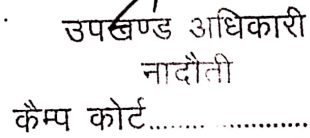 उपखण्ड अधिकारी
नादौती
कैम्प कोर्ट.......................